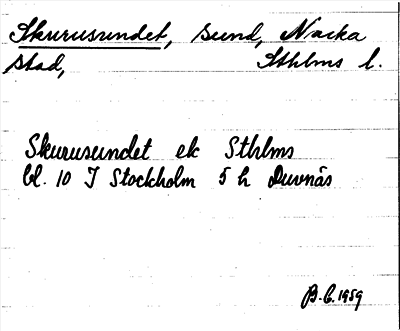 Skurusundet, sund, Nacka
stad, Sthlms l.
Skurusundet ek Sthlms
bl. 10 I Stockholm 5 h Duvnäs
B.C. 1959